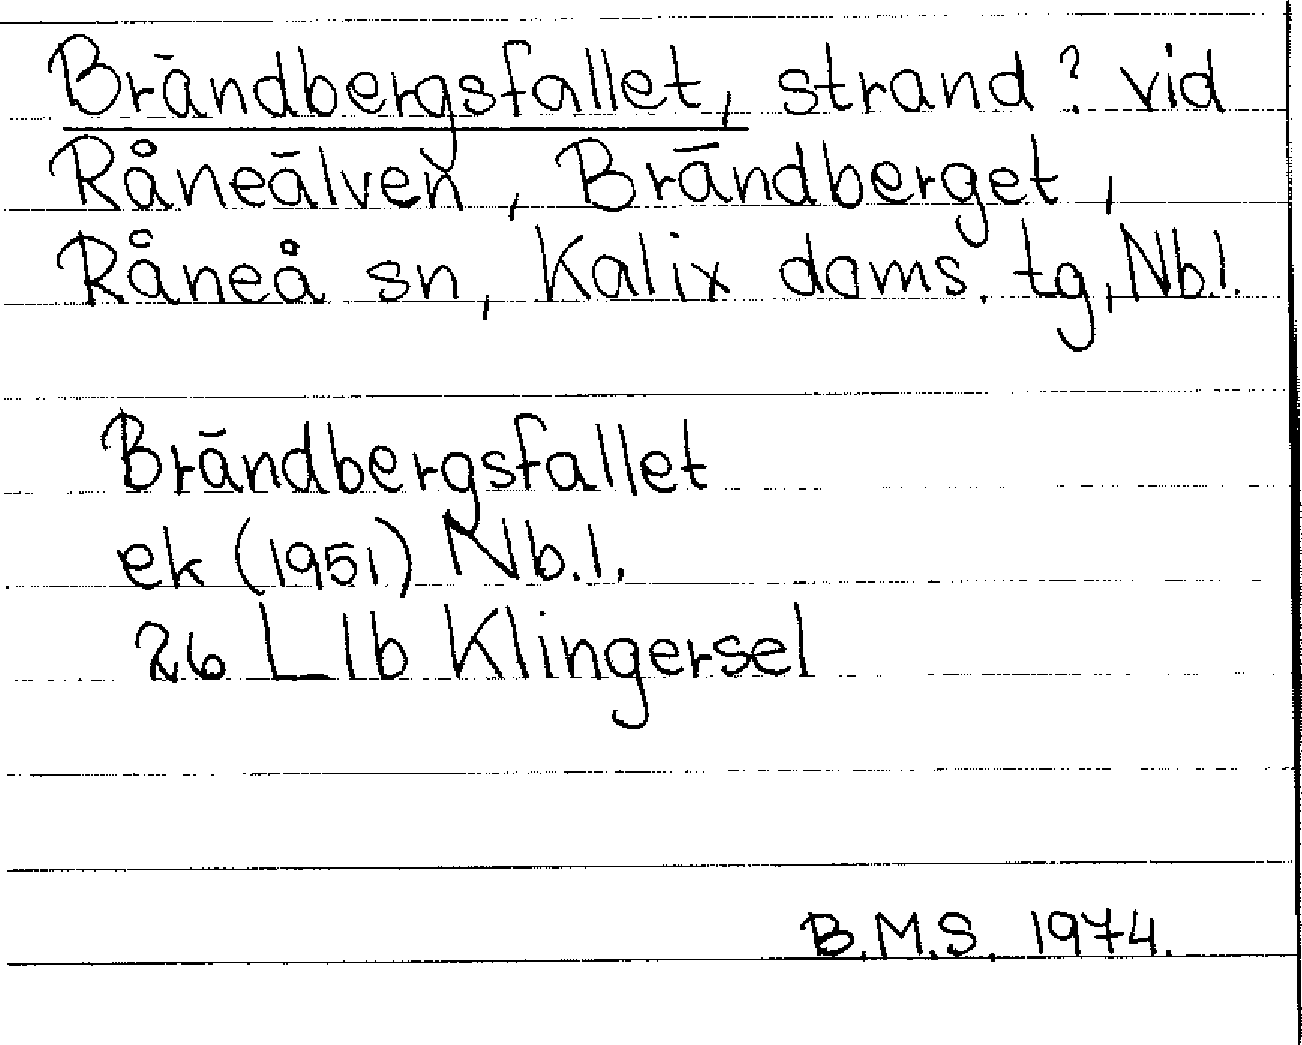 Brändbergsfallet, strand? vid
Råneälven, Brändberget,
Råneå sn, Kalix doms. tg, Nb.l.
Brändbergsfallet
ek (1951) Nb.l.
26 L 1b Klingersel
B.M.S. 1974.